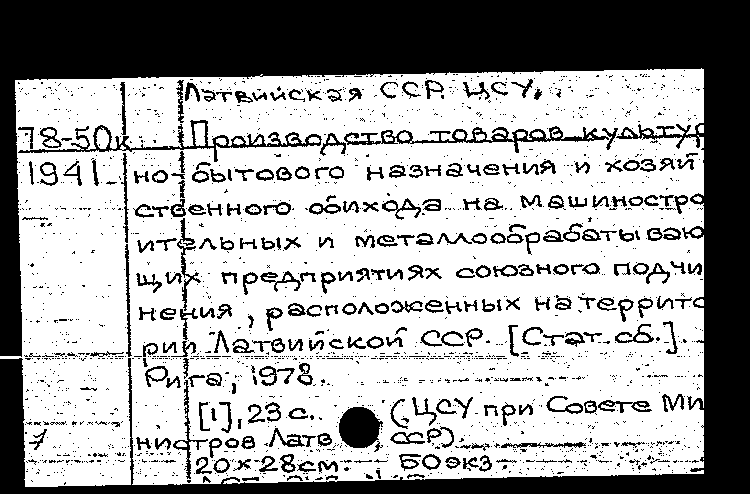 Латвийская ССР. ЦСУ.
78-50к Производство товаров культур
1941 но-бытового назначения и хозяй
ственного обихода на машиностро
ительных и металлообрабатываю
щих предприятиях союзного подчи
нения, расположенных на террито
рии Латвийской ССР. [Стат. сб.].
Рига, 1978.
[1], 23 с. (ЦСУ при Совете Ми
нистров Латв ССР).
20×28см. 50экз.